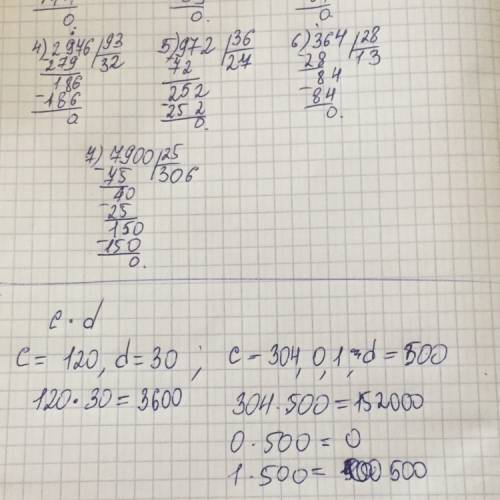 0. 0. 0.
4) 2976 93
279 32
186
- 186
0
5) 972 36
72 27
252
- 252
0.
6) 364 28
28 13
84
- 84
0.
7) 7900 25
- 75 306
40
- 25
150
- 150
0.
c · d
c = 120, d = 30 ; c – 304, 0, 1, d = 500
120 · 30 = 3600
304 · 500 = 152000
0 · 500 = 0
1 · 500 = 500